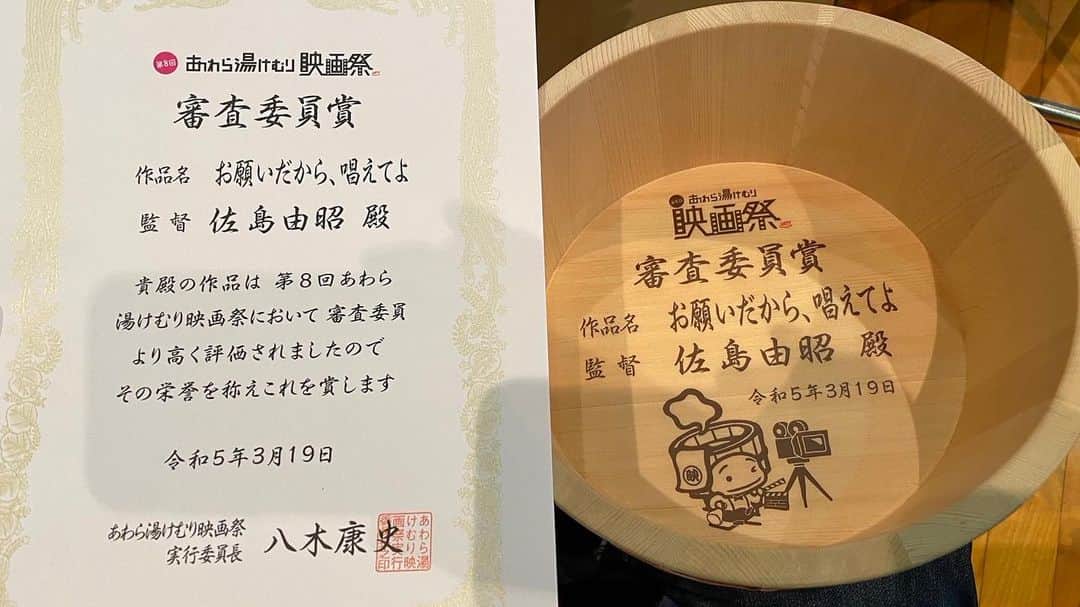 第8回 あわら湯けむり映画祭
審査委員賞
作品名 お願いだから、唱えてよ
監督 佐島由昭 殿
貴殿の作品は 第8回あわら
湯けむり映画祭において 審査委員
より高く評価されましたので
その栄誉を称えこれを賞します
令和5年3月19日
あわら湯けむり映画祭
実行委員長 八木康史
あわら湯
けむり映
画祭実行
あわら湯けむり
映画祭
審査委員賞
作品名 お願いだから、唱えてよ
監督 佐島由昭 殿
令和5年3月19日
映